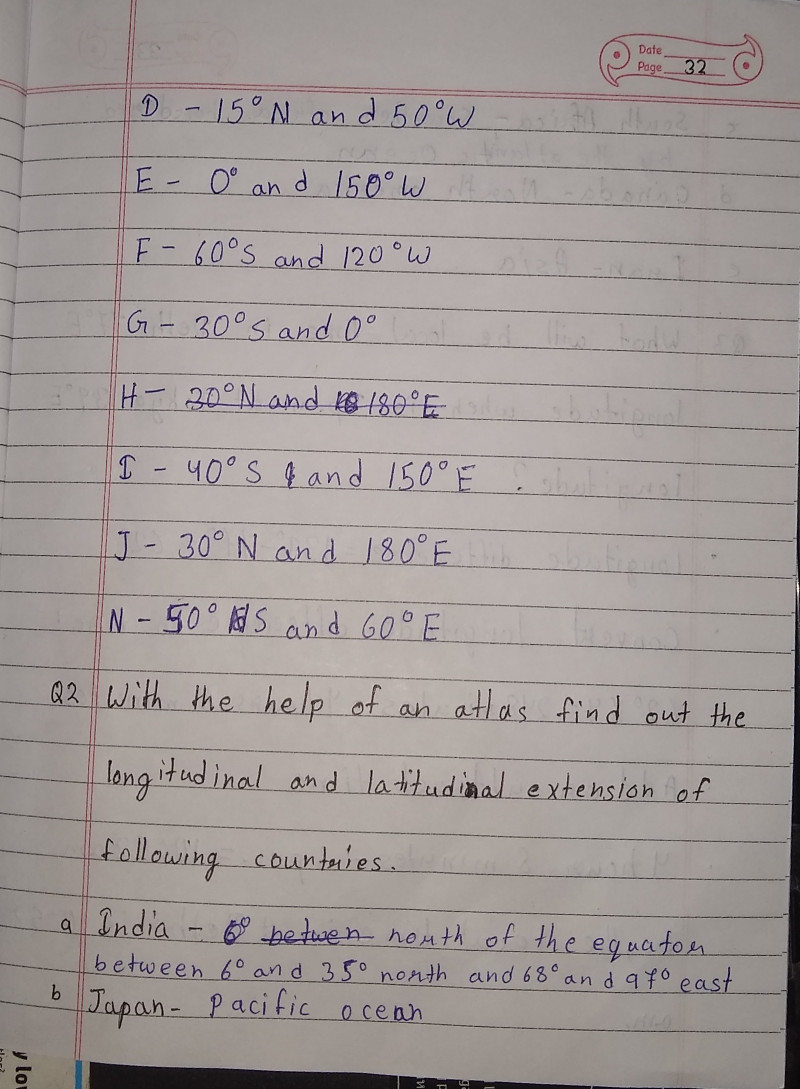 Date
Page 32
D - 15°N and 50°W
E - 0° and 150°W
F - 60°S and 120°W
G - 30°S and 0°
H - 30°N and 180°E
I - 40°S and 150°E .
J - 30°N and 180°E
N - 50° S and 60°E
Q2 With the help of an atlas find out the
longitudinal and latitudinal extension of
following countries.
a India - 6° betwen north of the equator
between 6° and 35° north and 68° and 97° east
b Japan - Pacific ocean